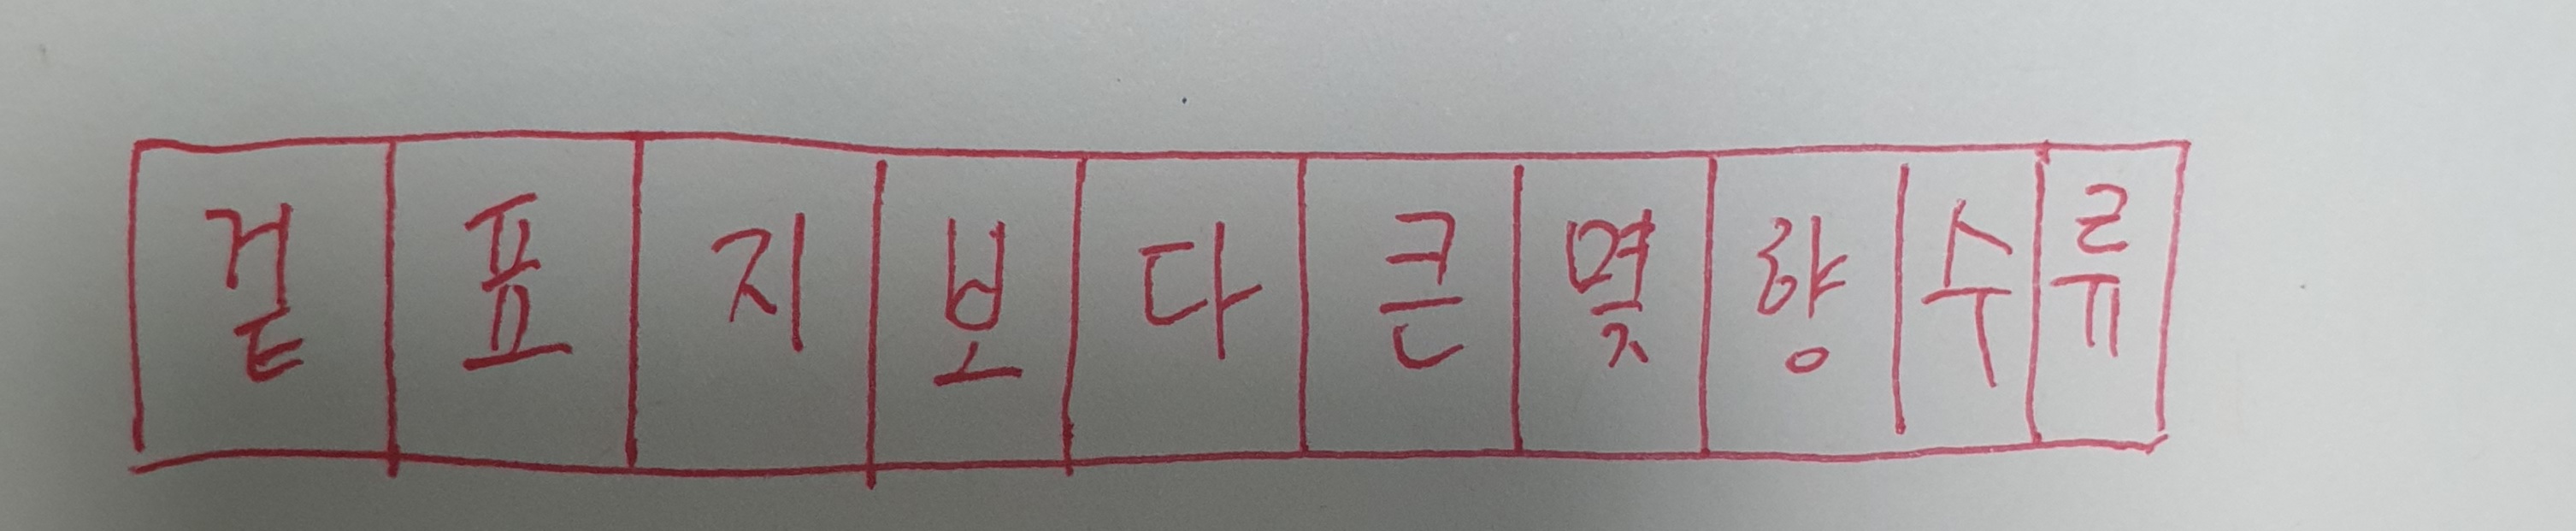 겉표지보다큰몇향수류